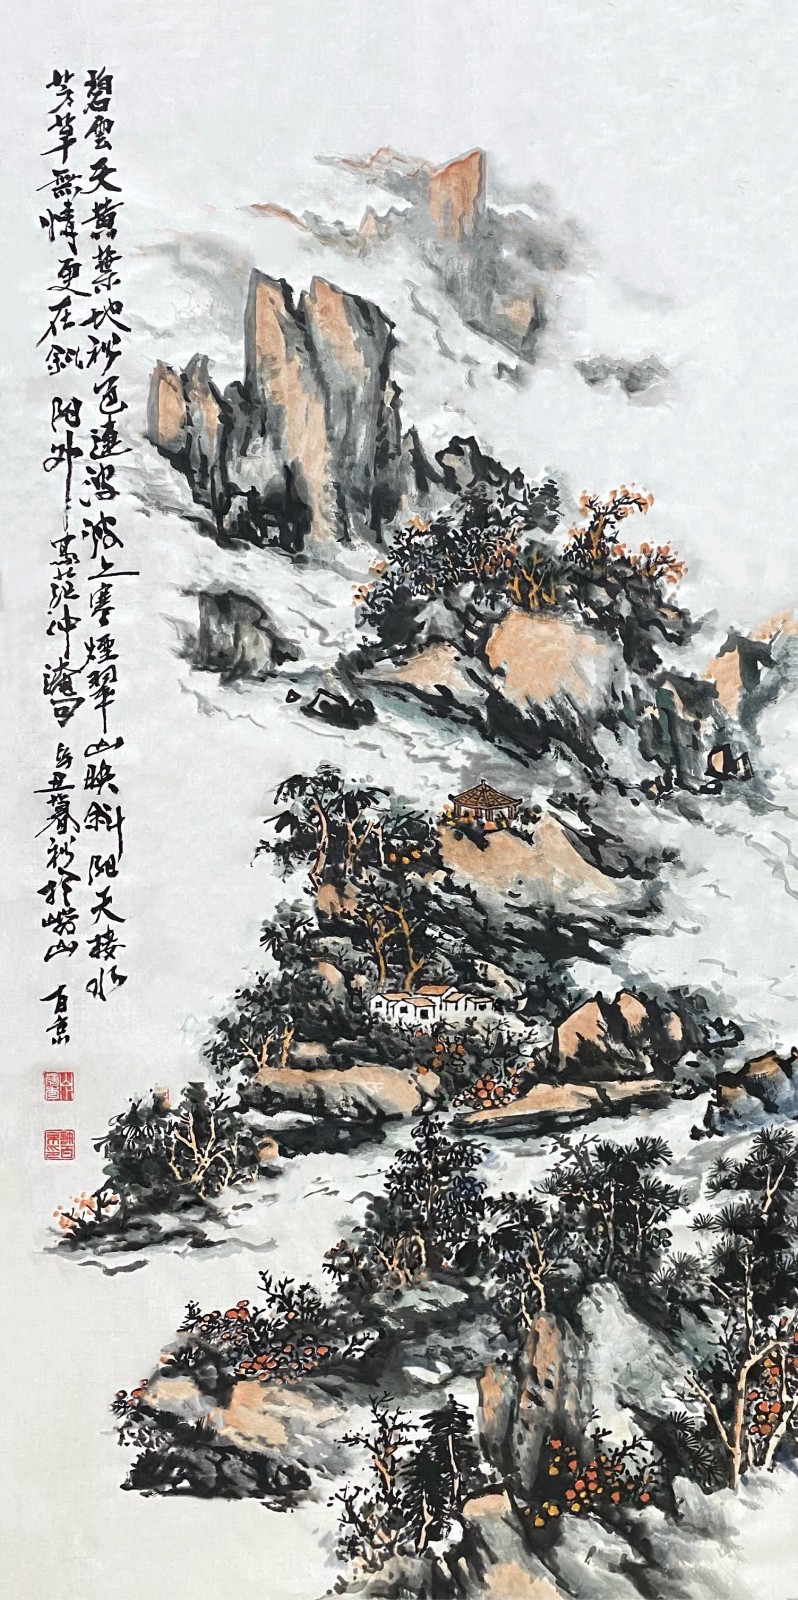 碧雲天黄葉地秋色連波波上寒煙翠山映斜陽天接水
芳草無情更在斜陽外 寫范仲淹句 辛丑暮秋於嶗山 百京